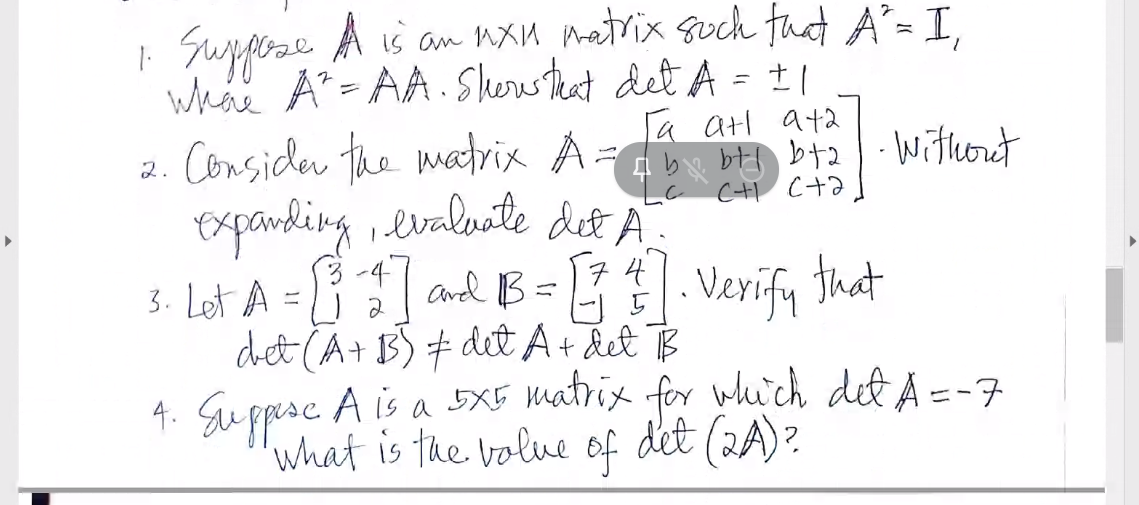 1. Suppose A is an nxn matrix such that A² = I,
where A² = AA. Show that det A = ±1
2. Consider the matrix A = [a a+1 a+2
b b+1 b+2
c c+1 c+2] . Without
expanding, evaluate det A.
3. Let A = [3 -4
1 2] and B = [7 4
-1 5] . Verify that
det (A + B) ≠ det A + det B
4. Suppose A is a 5x5 matrix for which det A = -7
What is the value of det (2A)?